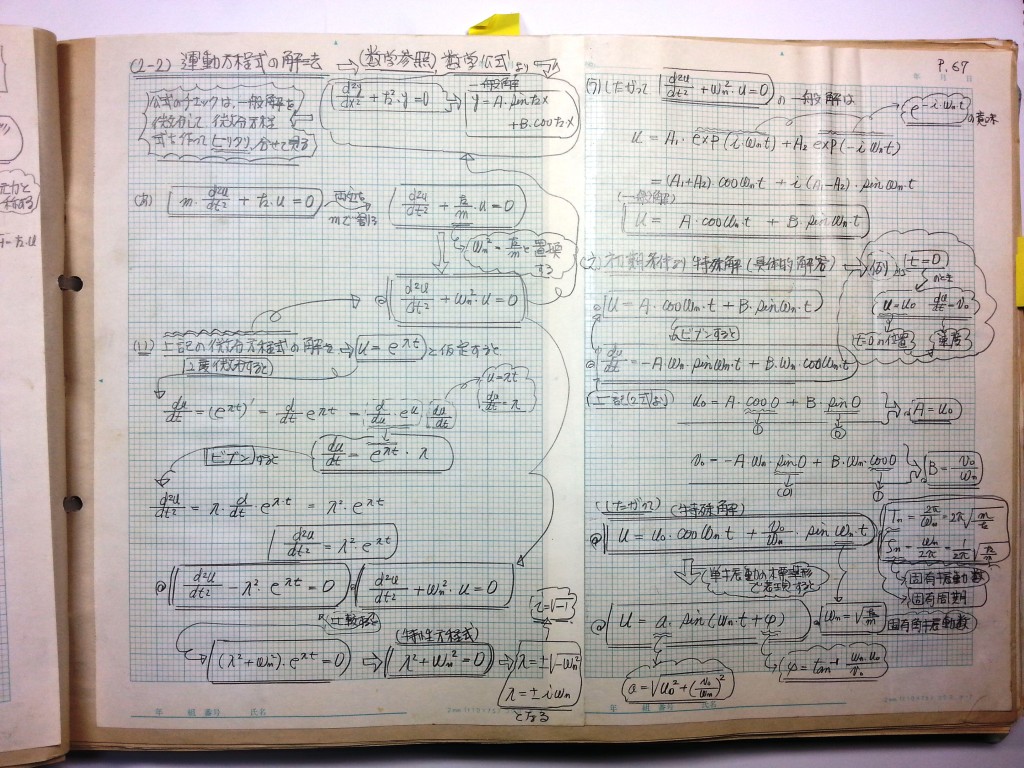 (2-2) 運動方程式の解法 → (数学参照, 数学公式より)
公式のチェックは,一般解を
微分して 微分方程
式を作って
d²y/dx² + k²·y = 0
一般解
y = A·sin kx
+ B·cos kx
(あ) m·d²u/dt² + k·u = 0
両辺を
mで割る
d²u/dt² + k/m·u = 0
ωn² = k/m と置換
する
d²u/dt² + ωn²·u = 0
(い) 上記の微分方程式の解を → u = e^λt と仮定すると
2度微分すると
du/dt = (e^λt)' = d/dt e^λt = d/du·e^u du/dt
u = λt
du/dt = λ
ビブンすると
du/dt = e^λt · λ
d²u/dt² = λ·d/dt·e^λ·t = λ²·e^λt
d²u/dt² = λ²·e^λt
◎ d²u/dt² − λ²·e^λt = 0
d²u/dt² + ωn²·u = 0
比較する
(特性方程式)
(λ² + ωn²)·e^λt = 0 → λ² + ωn² = 0 →
i = √-1
λ = ±√-ωn²
λ = ± iωn
となる
年 組 番号 氏名
年 月 日
P.67
(う) したがって d²u/dt² + ωn²·u = 0 の一般解は
e^-i·ωn·t の意味
u = A₁·exp(i·ωnt) + A₂ exp(-i·ωnt)
= (A₁+A₂)·cosωn·t + i(A₁-A₂)·sinωn·t
(一般解)
u = A·cosωn·t + B·sinωn·t
(え) 初期条件より 特殊解(具体的解答) → (例)
t = 0
u = u₀ du/dt = v₀
t=0の位置
◎ u = A·cosωn·t + B·sinωn·t
ビブンすると
◎ du/dt = -A·ωn·sinωn·t + B·ωn·cosωn·t
上記(2式より)
u₀ = A·cos0 + B·sin0
①
⓪
A = u₀
v₀ = -A·ωn·sin0 + B·ωn·cos0
(0)
①
B = v₀/ωn
(したがって) (特殊解)
◎ u = u₀·cosωn·t + v₀/ωn·sinωn·t
Tn = 2π/ωn = 2π√m/k
fn = ωn/2π = 1/2π √k/m
固有振動数
固有周期
固有角振動数
単振動の標準形
で表現すると
ωn = √k/m
◎ u = a·sin(ωn·t + φ)
a = √u₀² + (v₀/ωn)²
φ = tan⁻¹ ωn·u₀/v₀
年 組 番号 氏名